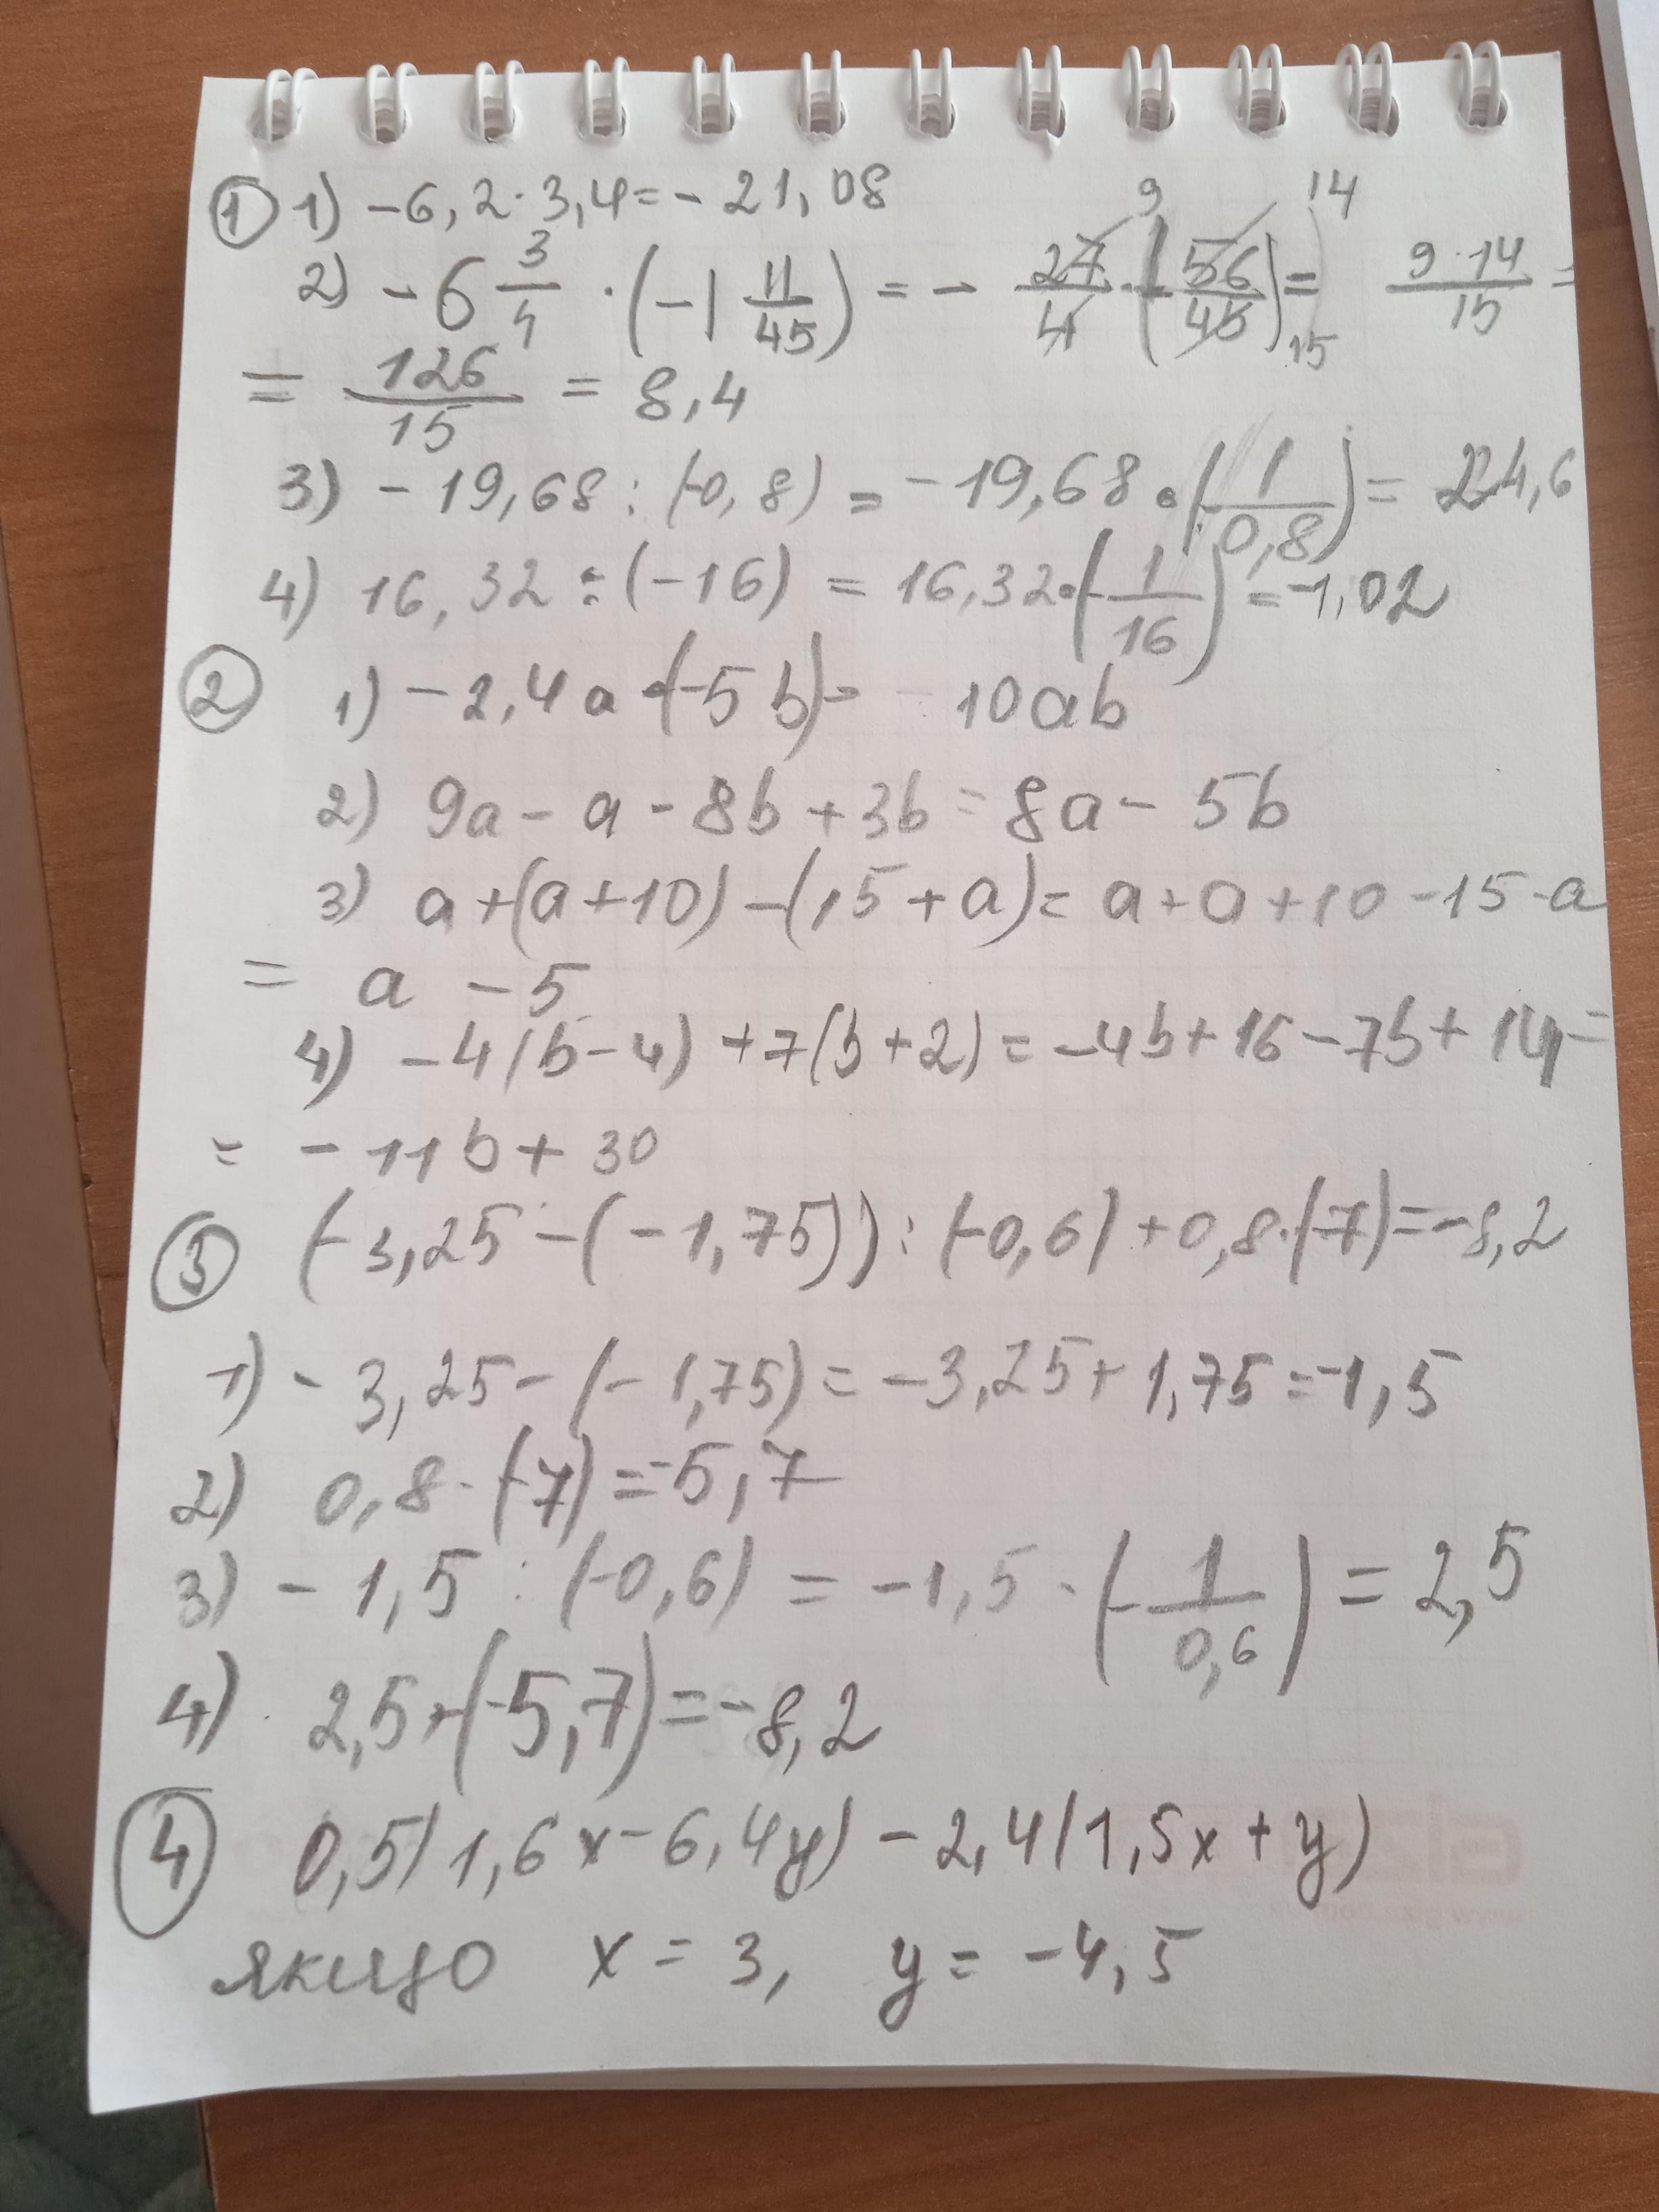 ① 1) -6,2·3,4=-21,08
2) -6 3/4 · (-1 11/45) = - 27/4 · (- 56/45) = 9 14 15 9·14/15 =
= 126/15 = 8,4
3) -19,68 : (-0,8) = -19,68 · (-1/0,8) = 24,6
4) 16,32 : (-16) = 16,32·(-1/16) = -1,02
② 1) -2,4a·(-5b)= 10ab
2) 9a - a - 8b + 3b = 8a - 5b
3) a+(a+10)-(15+a)= a+a+10-15-a
= a -5
4) -4(b-4)+7(b+2)=-4b+16-7b+14=
= -11b+30
③ (-3,25-(-1,75)):(-0,6)+0,8·(-7)=-8,2
1) -3,25-(-1,75)=-3,25+1,75=-1,5
2) 0,8·(-7)=-5,7
3) -1,5 : (-0,6) = -1,5 · (-1/0,6) = 2,5
4) 2,5+(-5,7)=-8,2
④ 0,5(1,6x-6,4y)-2,4(1,5x+y)
якщо x = 3, y = -4,5